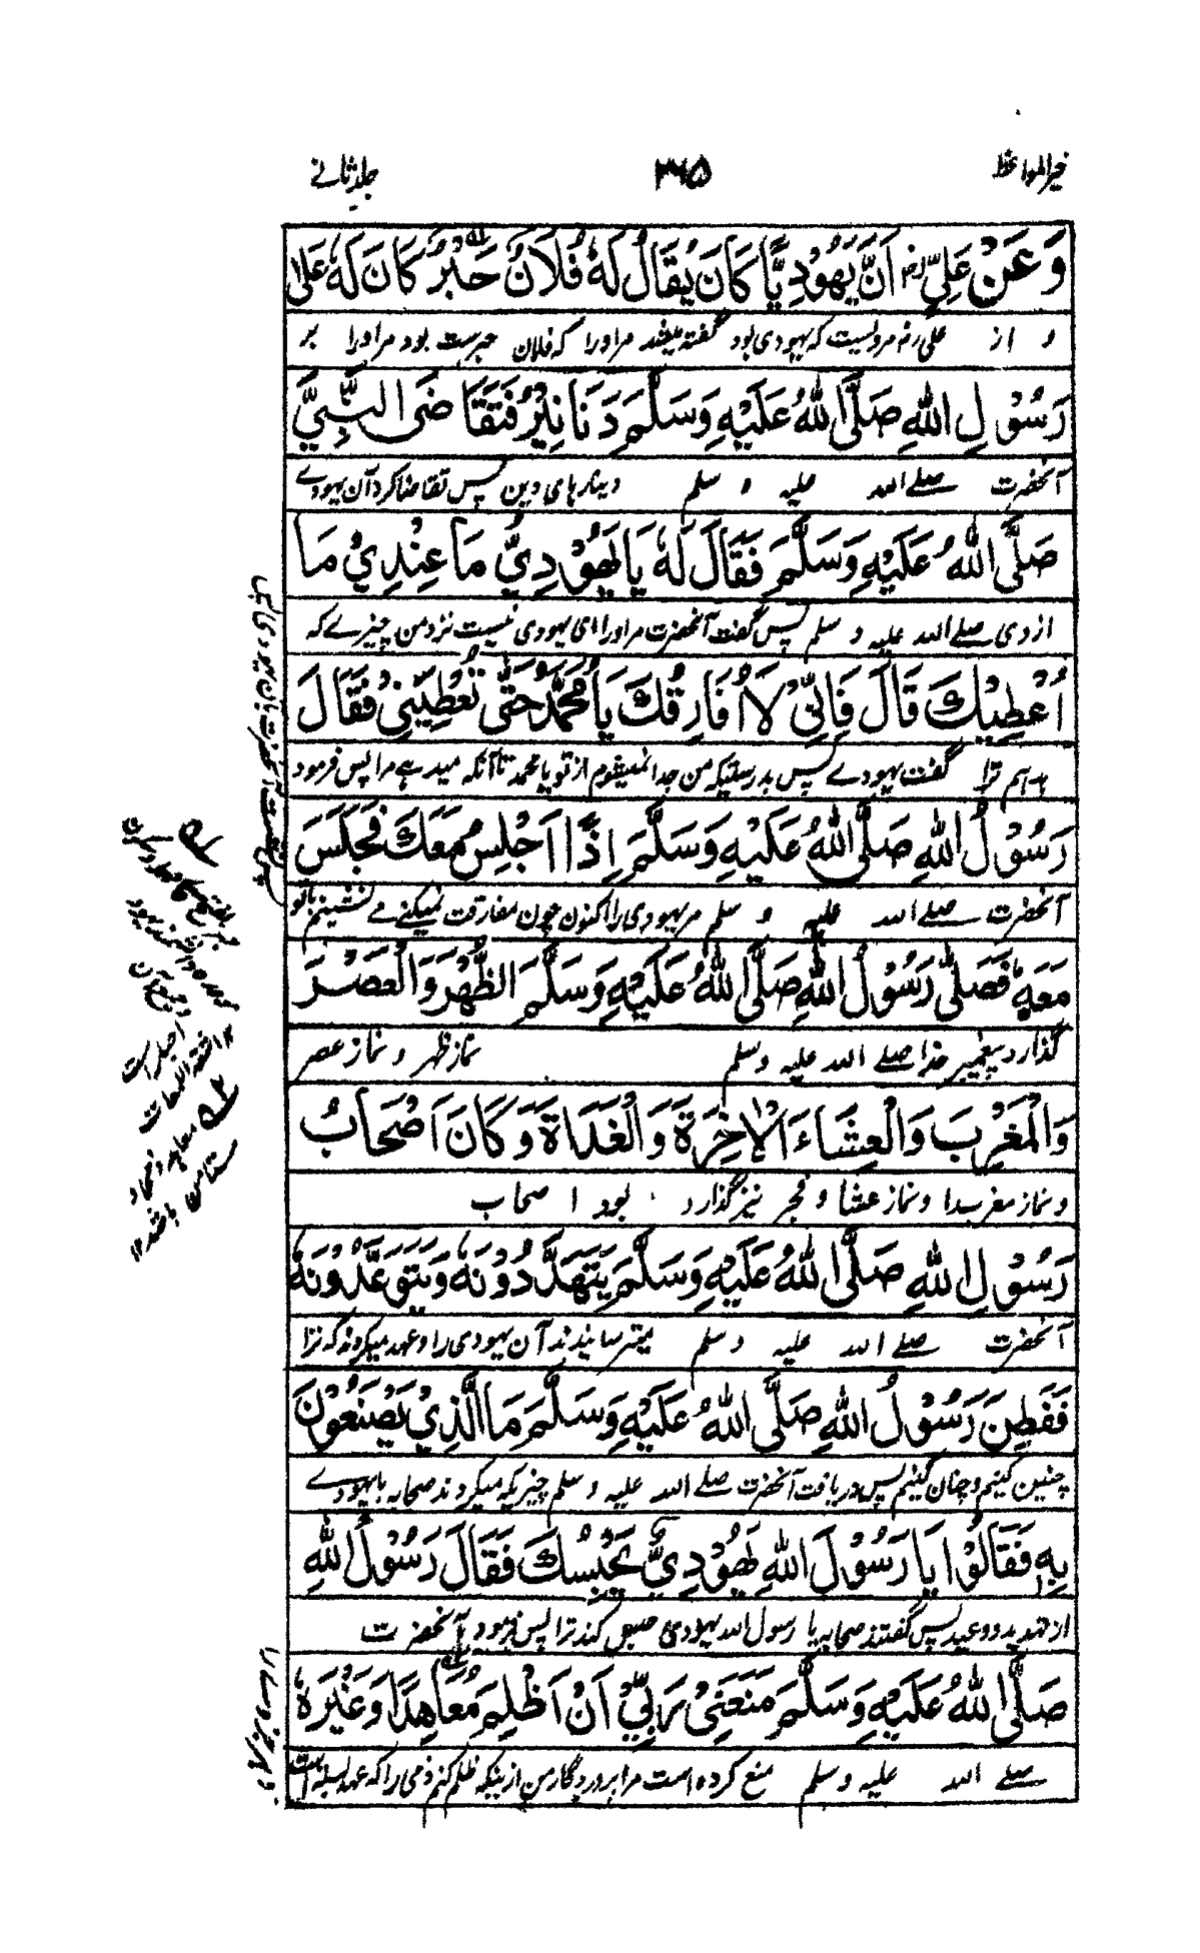 خیرالمواعظ
۳۶۵
جلد ثانے
وَعَنْ عَلِيٍّ رض اَنَّ يَهُوْدِيًّا كَانَ يُقَالُ لَهٗ فُلَانٌ حَبْرٌ كَانَ لَهٗ عَلٰى
و از علی رض مرویست که یهودی بود گفته میشد مر او را که فلان حبرست بود مر او را بر
رَسُوْلِ اللهِ صَلَّى اللهُ عَلَيْهِ وَسَلَّمَ دَنَانِيْرُ فَتَقَاضَى النَّبِيَّ
آنحضرت صلے الله علیه و سلم دینارهای دین پس تقاضا کرد آن یهودے
صَلَّى اللهُ عَلَيْهِ وَسَلَّمَ فَقَالَ لَهٗ يَا يَهُوْدِيُّ مَا عِنْدِيْ مَا
از وی صلے الله علیه و سلم پس گفت آنحضرت مر او را ای یهودی نیست نزد من چیزے که
اُعْطِيْكَ قَالَ فَاِنِّيْ لَا اُفَارِقُكَ يَا مُحَمَّدُ حَتّٰى تُعْطِيَنِيْ فَقَالَ
بدهم ترا گفت یهودے پس بدرستیکه من جدا نمیشوم از تو یا محمد تا آنکه میدهے مرا پس فرمود
رَسُوْلُ اللهِ صَلَّى اللهُ عَلَيْهِ وَسَلَّمَ اِذًا اَجْلِسُ مَعَكَ فَجَلَسَ
آنحضرت صلے الله علیه و سلم مر یهودی را اکنون چون مفارقت نمیکنے مے نشینم با تو
مَعَهٗ فَصَلّٰى رَسُوْلُ اللهِ صَلَّى اللهُ عَلَيْهِ وَسَلَّمَ الظُّهْرَ وَالْعَصْرَ
گذارد پیغمبر خدا صلے الله علیه وسلم نماز ظهر و نماز عصر
وَالْمَغْرِبَ وَالْعِشَاءَ الْاٰخِرَةَ وَالْغَدَاةَ وَكَانَ اَصْحَابُ
و نماز مغرب را و نماز عشا و فجر نیز گذارد بود اصحاب
رَسُوْلِ اللهِ صَلَّى اللهُ عَلَيْهِ وَسَلَّمَ يَتَهَدَّدُوْنَهٗ وَيَتَوَعَّدُوْنَهٗ
آنحضرت صلے الله علیه وسلم میترسانیدند آن یهودی را و عهد میکردند که ترا
فَفَطِنَ رَسُوْلُ اللهِ صَلَّى اللهُ عَلَيْهِ وَسَلَّمَ مَا الَّذِيْ يَصْنَعُوْنَ
چنین کنیم و چنان کنیم پس دریافت آنحضرت صلے الله علیه و سلم چیزیکه میکردند صحابه با یهودے
بِهٖ فَقَالُوْا يَا رَسُوْلَ اللهِ يَهُوْدِيٌّ يَحْبِسُكَ فَقَالَ رَسُوْلُ اللهِ
از تهدید و وعید پس گفتند صحابه یا رسول الله یهودی حبس کند ترا پس فرمود آنحضرت
صَلَّى اللهُ عَلَيْهِ وَسَلَّمَ مَنَعَنِيْ رَبِّيْ اَنْ اَظْلِمَ مُعَاهِدًا وَغَيْرَهٗ
صلے الله علیه وسلم منع کرده است مرا پروردگار من ازینکه ظلم کنم ذمی را که عهد بسته است
معاهد
اشعة اللمعات
باشد ۱۲